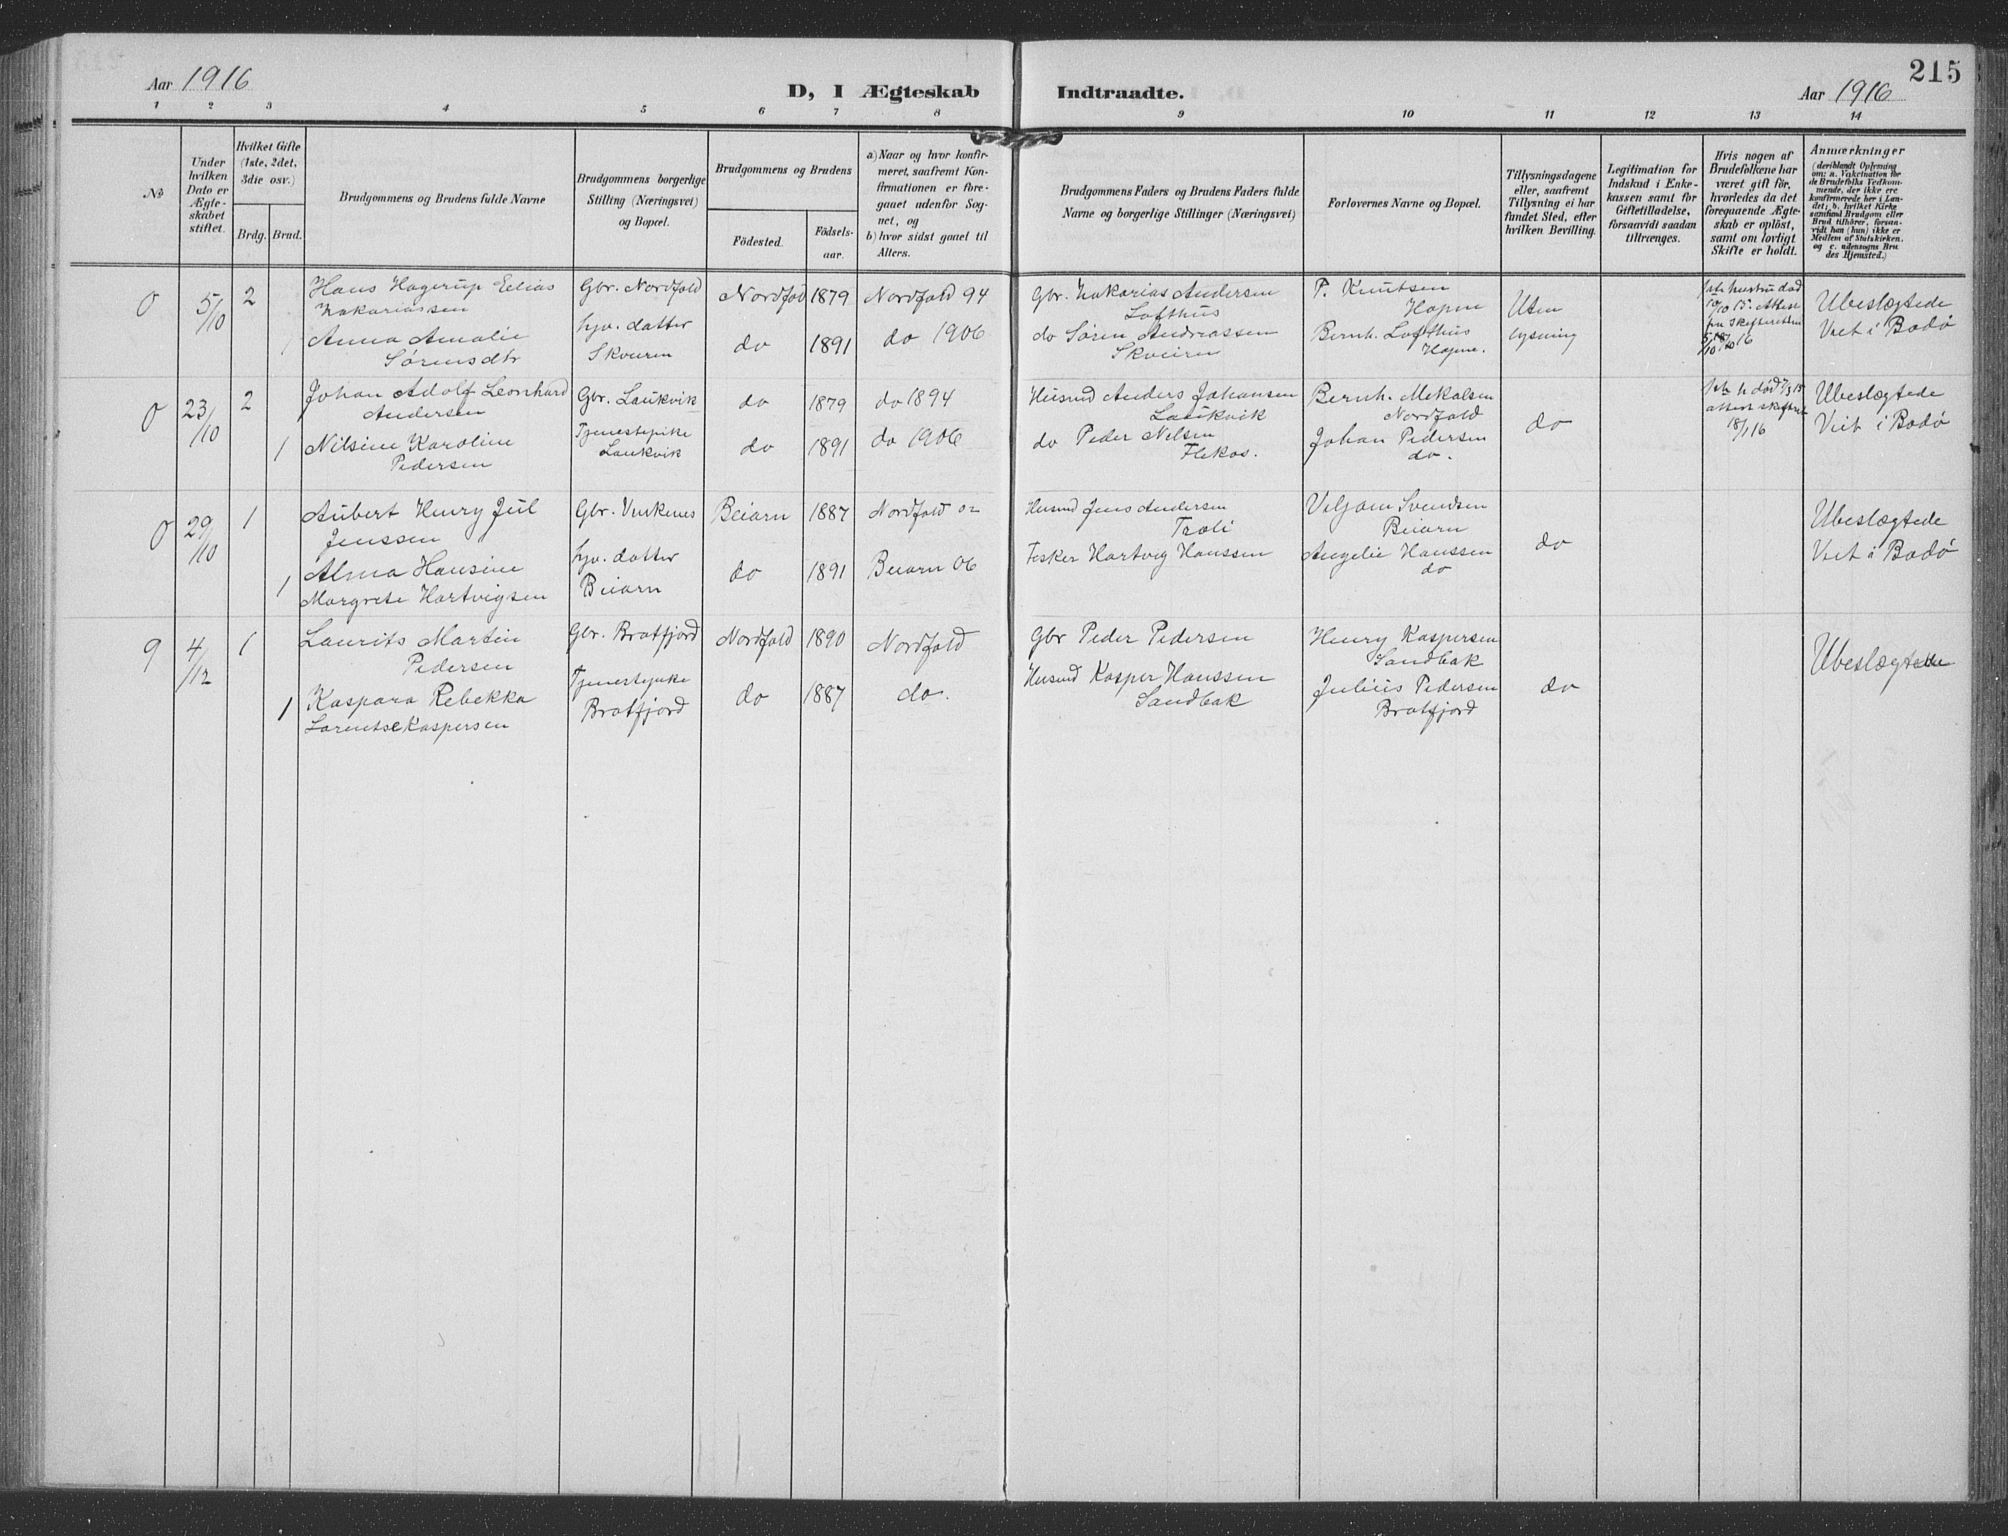 215
Aar 1916
D, I Ægteskab Indtraadte.
Aar 1916
1 2 3 4 5 6 7 8 9 10 11 12 13 14
No
Under
hvilken
Dato er
Ægte-
skabet
stiftet.
Hvilket Gifte
(1ste, 2det,
3die osv.)
Brdg. Brud.
Brudgommens og Brudens fulde Navne
Brudgommens borgerlige
Stilling (Næringsvei)
og Bopæl.
Brudgommens og Brudens
Födested.
Födsels-
aar.
a) Naar og hvor konfir-
meret, saafremt Kon-
firmationen er fore-
gaaet udenfor Sog-
net, og
b) hvor sidst gaaet til
Alters.
Brudgommens Faders og Brudens Faders fulde
Navne og borgerlige Stillinger (Næringsvei)
Forlovernes Navne og Bopæl.
Tillysningsdagene
eller, saafremt
Tillysning ei har
fundet Sted, efter
hvilken Bevilling.
Legitimation for
Indskud i Enke-
kassen samt for
Giftetilladelse,
forsaavidt saadan
tiltrænges.
Hvis nogen af
Brudefolkene har
været gift för,
hvorledes da det
foregaaende Ægte-
skab er oplöst,
samt om lovligt
Skifte er holdt.
Anmærkninger
(deriblandt Oplysning
om: a. Vakcination for
de Brudefolks Vedkom-
mende, der ikke ere
konfirmerede her i Lan-
det; b. hvilket Kirke
samfund Brudgom eller
Brud tilhörer, forsaa-
vidt han (hun) ikke er
Medlem af Statskirken.
og c. udensogns Bru
des Hjemsted.)
0 5/10 2 Hans Hagerup Eelias
Zakariassen
Gbr. Nordfold
Nordfold 1879 Nordfold 94
Gbr. Zakarias Andersen
Lofthus
P. Knutsen
Hopen
Uten
lysning
Ubeslægtede
Viet i Bodø
1 Anna Amalie
Sørensdtr
hjv. datter
Skveiren
do 1891 do 1906
do Søren Andreassen
Skveiren
Bernh. Lofthus
Hopen.
0 23/10 2 Johan Adolf Leonhard
Andersen
Gbr. Laukvik
do 1879 do 1894
Husmd Anders Johansen
Laukvik
Bernh. Mekalsen
Nordfold
do
18/1 16
Ubeslægtede
Viet i Bodø
1 Nilsine Karoline
Pedersen
Tjenestepike
Laukvik
do 1891 do 1906
do Peder Nilsen
Flekos.
Johan Pedersen
do.
0 29/10 1 Aubert Henry Jul
Jenssen
Gbr. Vinkenes
Beiarn 1887 Nordfold 02
Husmd Jens Andersen
Tvoli
Viljam Svendsen
Beiarn
do
Ubeslægtede
Viet i Bodø
1 Alma Hansine
Margrete Hartvigsen
hjv. datter
Beiarn
do 1891 Beiarn 06
Fisker Hartvig Hanssen
Angelie Hanssen
do
9 4/12 1 Laurits Martin
Pedersen
Gbr. Brotfjord
Nordfold 1890 Nordfold
Gbr Peder Pedersen
Henry Kaspersen
Sandbak
do
Ubeslægtede
1 Kaspara Rebekka
Lorentse Kaspersen
Tjenestepike
Brotfjord
do 1887 do.
Husmd Kasper Hanssen
Sandbak
Julius Pedersen
Brotfjord